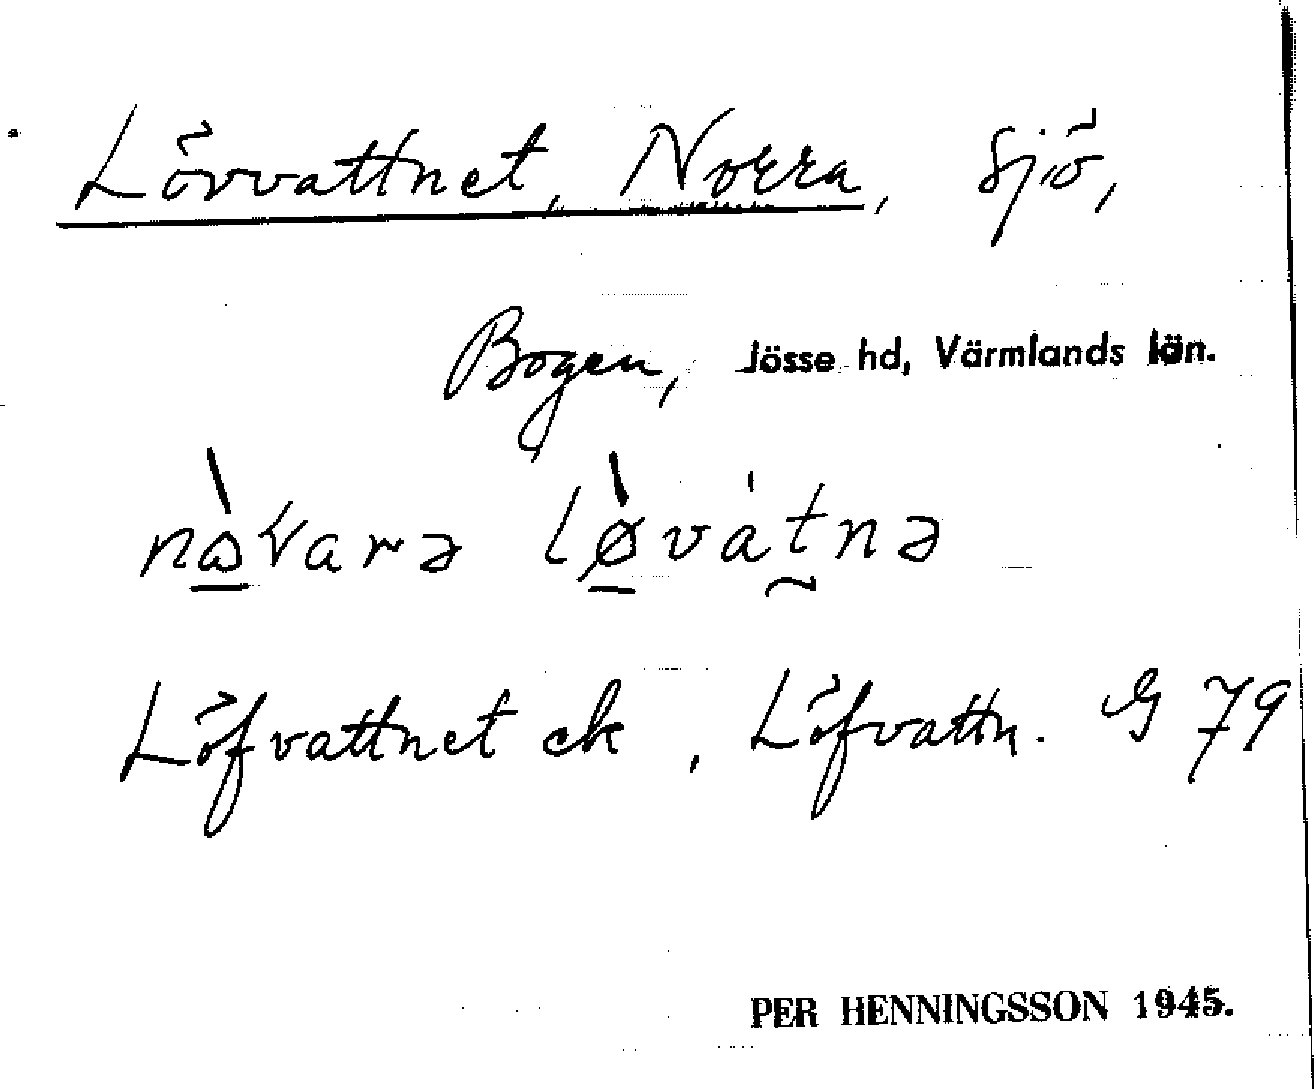 Lövvattnet, Norra, sjö,
Bogen, Jösse hd, Värmlands län.
lø̱̀vátnə
Löfvattnet ek, Löfvattn. G 79
PER HENNINGSSON 1945.